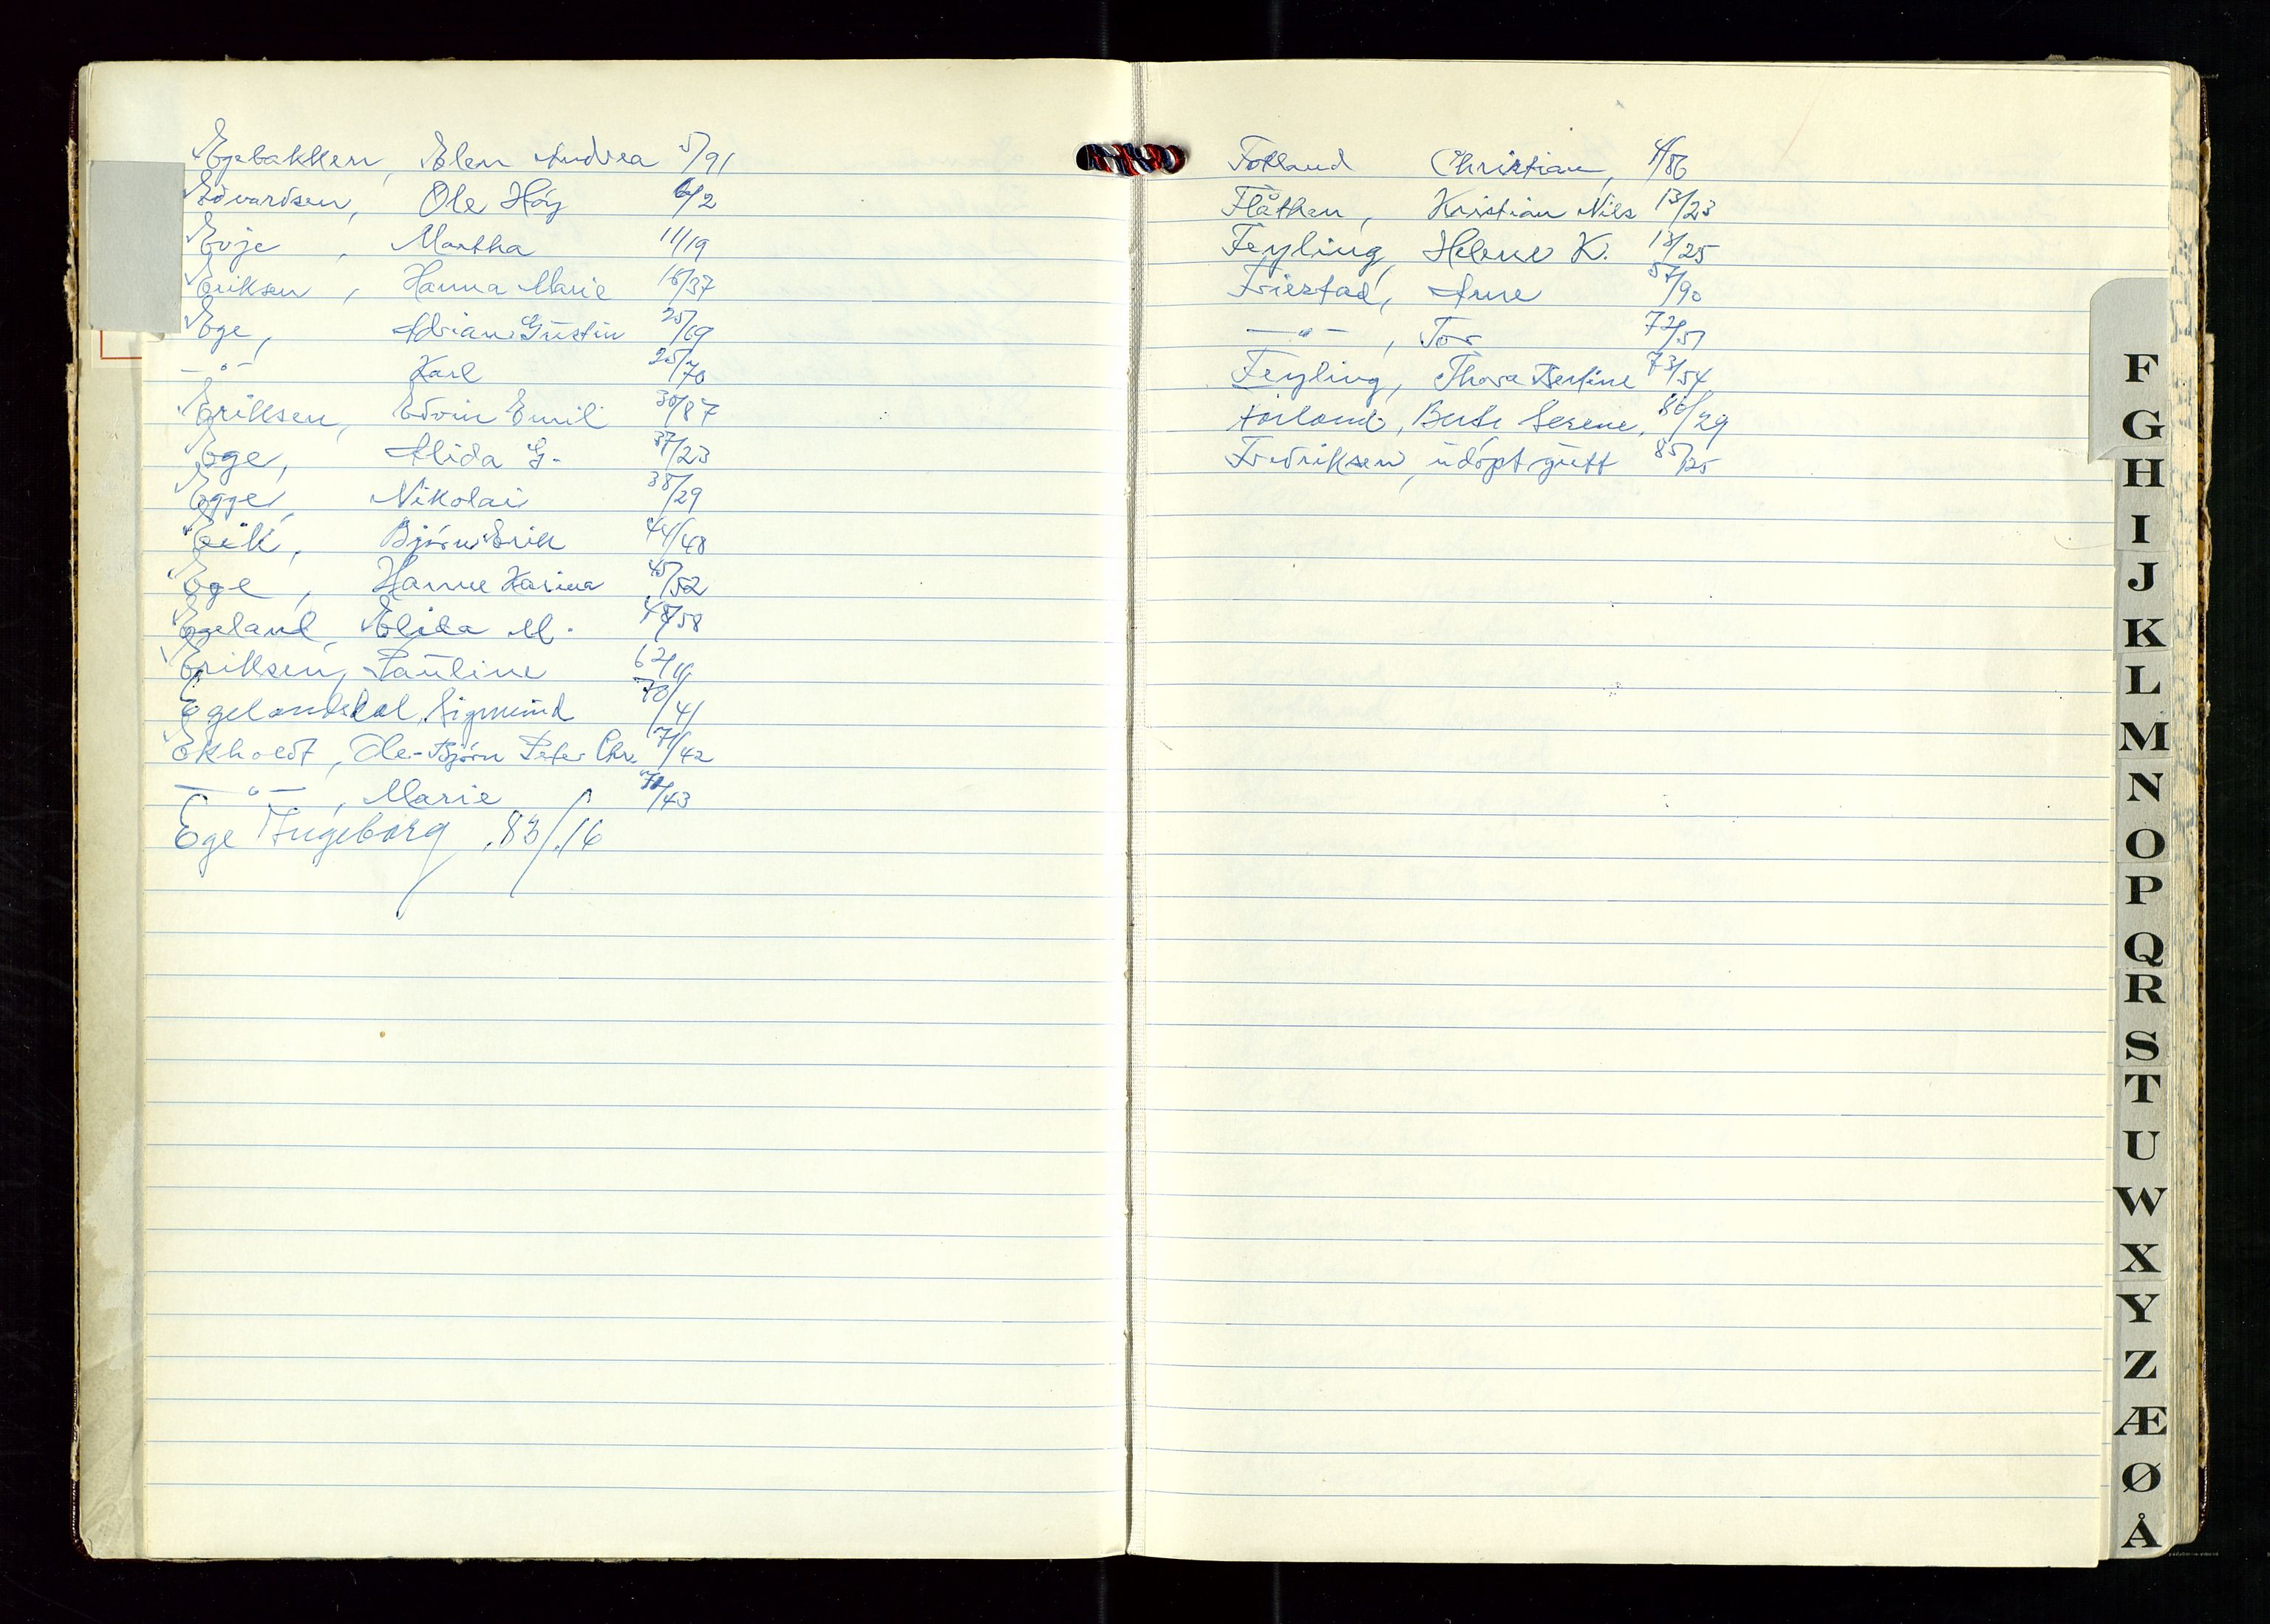 Egebakken, Elen Andrea 5/91
Edvardsen, Ole Höy 6/2
Evje, Martha 11/19
Eriksen, Hanna Marie 16/37
Ege, Adrian Gustin 25/69
— " — Karl 25/70
Eriksen, Edvin Emil 30/87
Ege, Alida G. 37/23
Egge, Nikolai 38/29
Eik, Bjørn Erik 44/48
Ege, Hanne Karina 45/52
Egeland, Elida M. 48/58
Eriksen, Pauline
Egelandsdal, Sigmund 70/41
Ekholdt, Ole-Bjørn Peter Chr. 71/42
— " —, Marie 71/43
Ege Ingeborg 83/16
Fotland Christian, 4/86
Flåthen, Kristian Nils 13/23
Feyling, Helene K. 13/25
Friestad, Arne 57/90
— " —, Tor 72/51
Feyling, Thora Bertine 73/54
Förland, Berte Serene, 80/29
Fredriksen, udöpt gutt 85/25
F
G
H
I
J
K
L
M
N
O
P
Q
R
S
T
U
W
X
Y
Z
Æ
Ø
Å